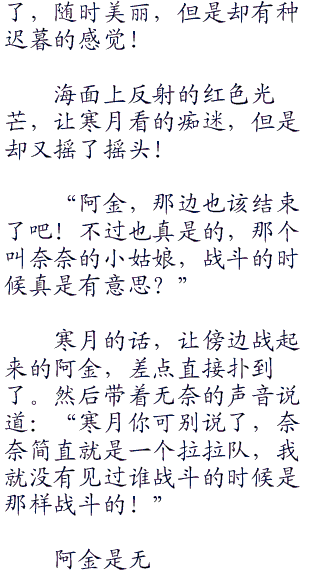 了，随时美丽，但是却有种
迟暮的感觉！
海面上反射的红色光
芒，让寒月看的痴迷，但是
却又摇了摇头！
“阿金，那边也该结束
了吧！不过也真是的，那个
叫奈奈的小姑娘，战斗的时
候真是有意思？”
寒月的话，让傍边战起
来的阿金，差点直接扑到
了。然后带着无奈的声音说
道：“寒月你可别说了，奈
奈简直就是一个拉拉队，我
就没有见过谁战斗的时候是
那样战斗的！”
阿金是无